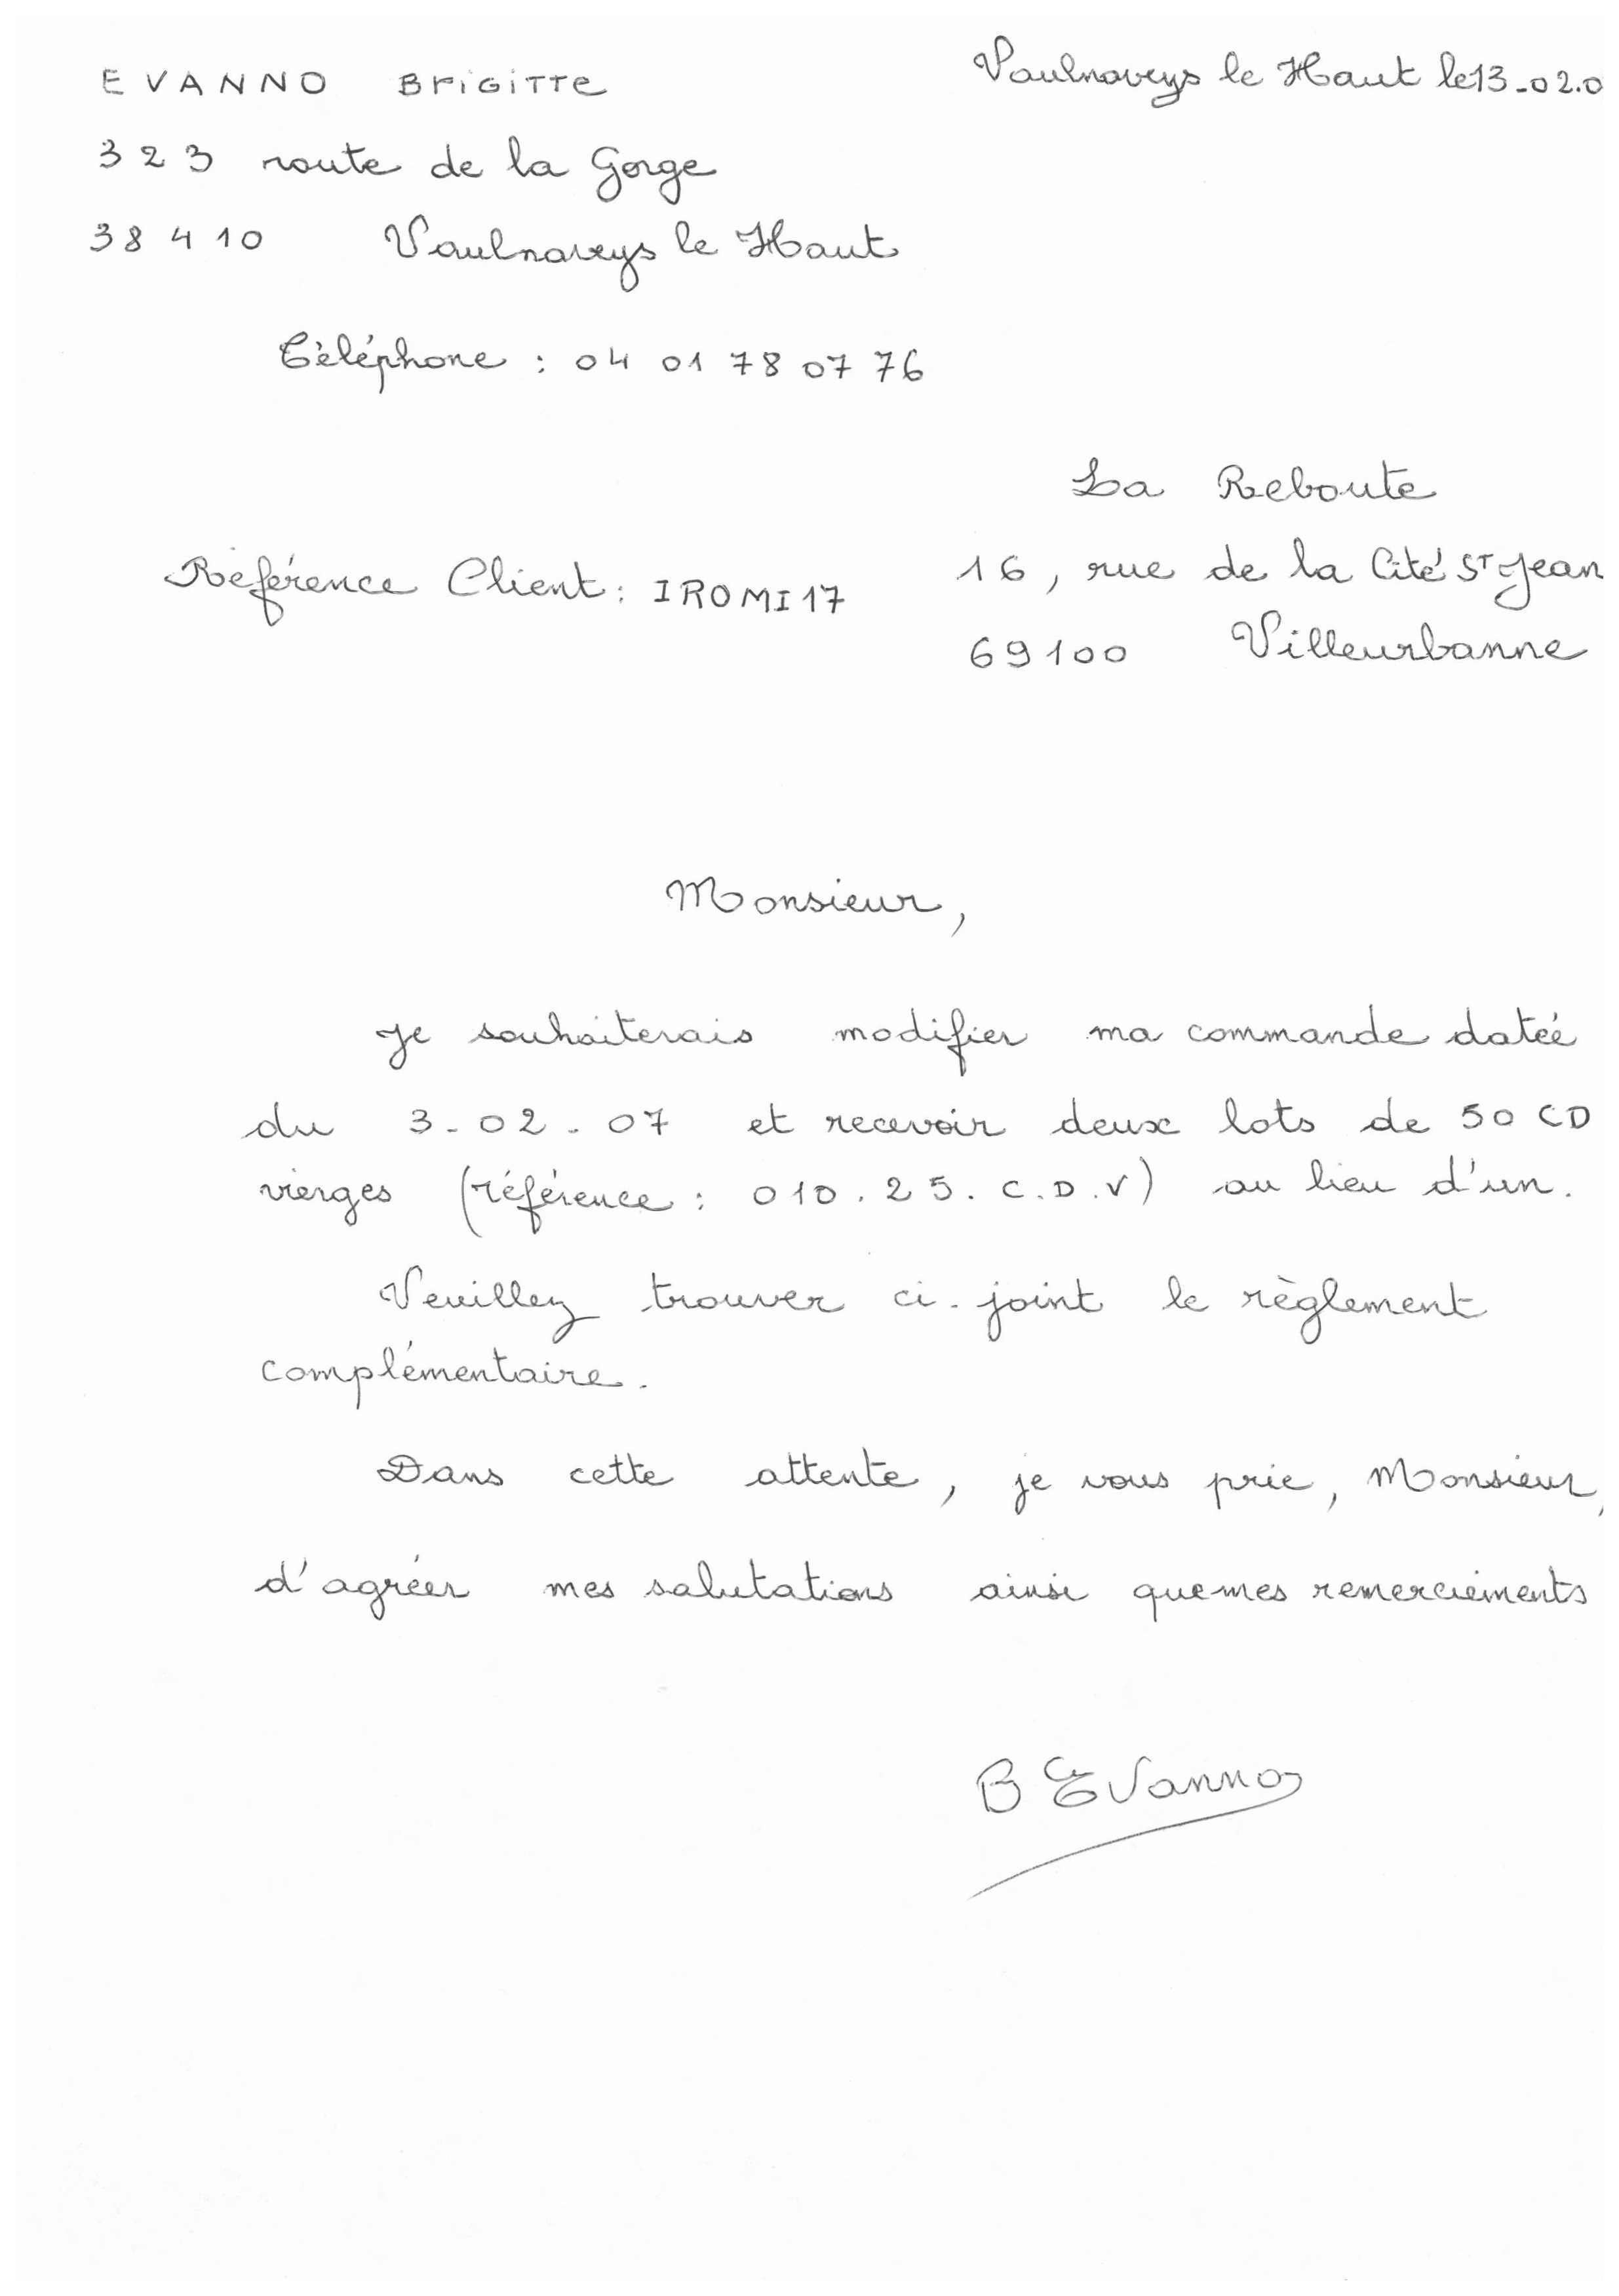 EVANNO BRIGITTE
Vaulnaveys le Haut le 13-02.0
323 route de la Gorge
38410 Vaulnaveys le Haut
Téléphone : 04 01 78 07 76
La Reboute
Référence Client : IROMI17
16, rue de la Cité St Jean
69100 Villeurbanne
Monsieur,
Je souhaiterais modifier ma commande datée
du 3-02-07 et recevoir deux lots de 50 CD
vierges (référence : 010.25.C.D.V) au lieu d'un.
Veuillez trouver ci-joint le règlement
complémentaire.
Dans cette attente, je vous prie, Monsieur,
d'agréer mes salutations ainsi que mes remerciements
B Evanno